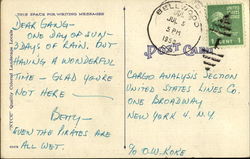 THIS SPACE FOR WRITING MESSAGES
DEAR GANG-
ONE DAY OF SUN-
3 DAYS OF RAIN. BUT
HAVING A WONDERFUL
TIME - GLAD YOU'RE
NOT HERE -
BETTY-
EVEN THE PIRATES ARE
ALL WET.
BELLWOOD
JUL 5
5 PM
POST CARD
CARGO ANALYSIS SECTION
UNITED STATES LINES CO.
ONE BROADWAY
NEW YORK 4 N.Y.
c/o O.W. KOKE